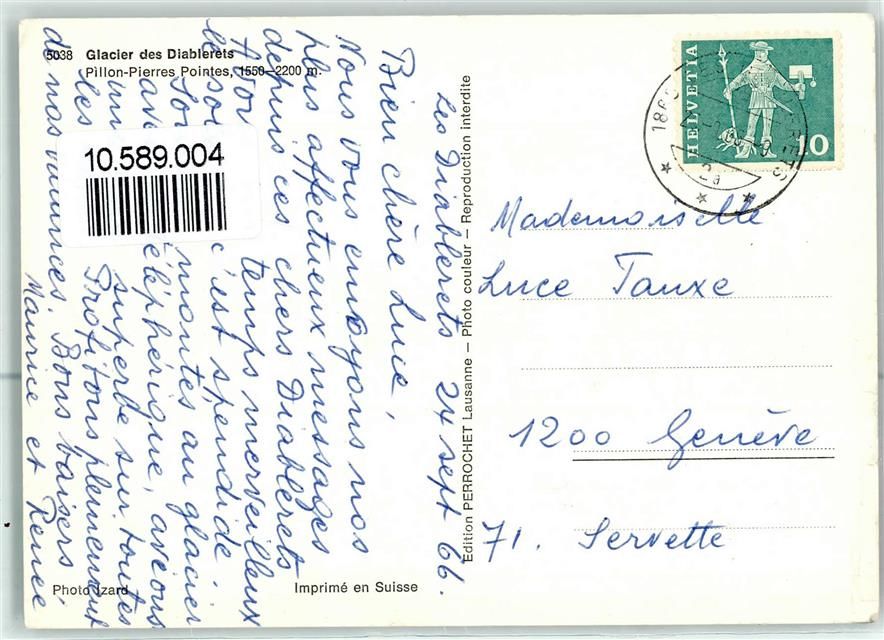 5038 Glacier des Diablerets
Pillon-Pierres Pointes, 1550-2200 m.
10.589.004
Les Diablerets 24 sept 66.
Bien chère Luce,
Nous vous envoyons nos
plus affectueux messages
depuis ces chers Diablerets
temps merveilleux
le c'est spendide.
montés au glacier
avec éléphérique, avions
superbe sur toutes
les Profitons pleinement
de nos vacances. Bons baisers,
Maurice et Renée
Photo Izard
Imprimé en Suisse
Edition PERROCHET Lausanne - Photo couleur - Reproduction interdite
HELVETIA
10
Mademoiselle
Luce Tauxe
1200 Genève
71. Servette